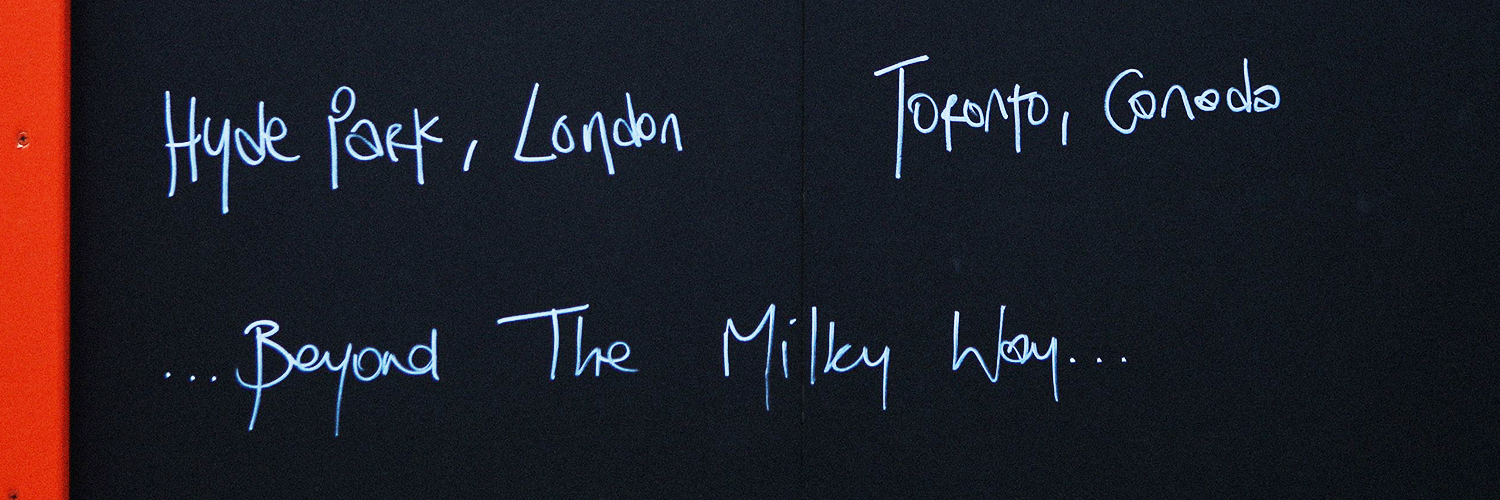 Hyde Park, London
Toronto, Canada
...Beyond The Milky Way...